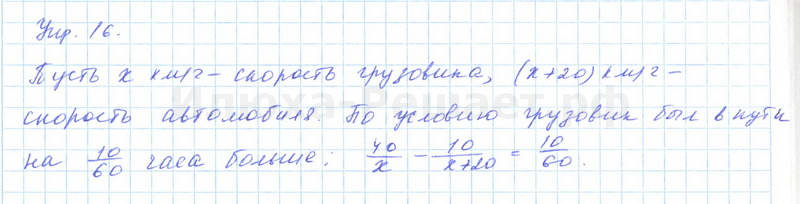 Упр. 16.
Пусть x км/г – скорость грузовика, (x+20) км/г –
скорость автомобиля. По условию грузовик был в пути
на 10/60 часа больше: 40/x – 10/x+20 = 10/60.
Илюха-Решает.рф